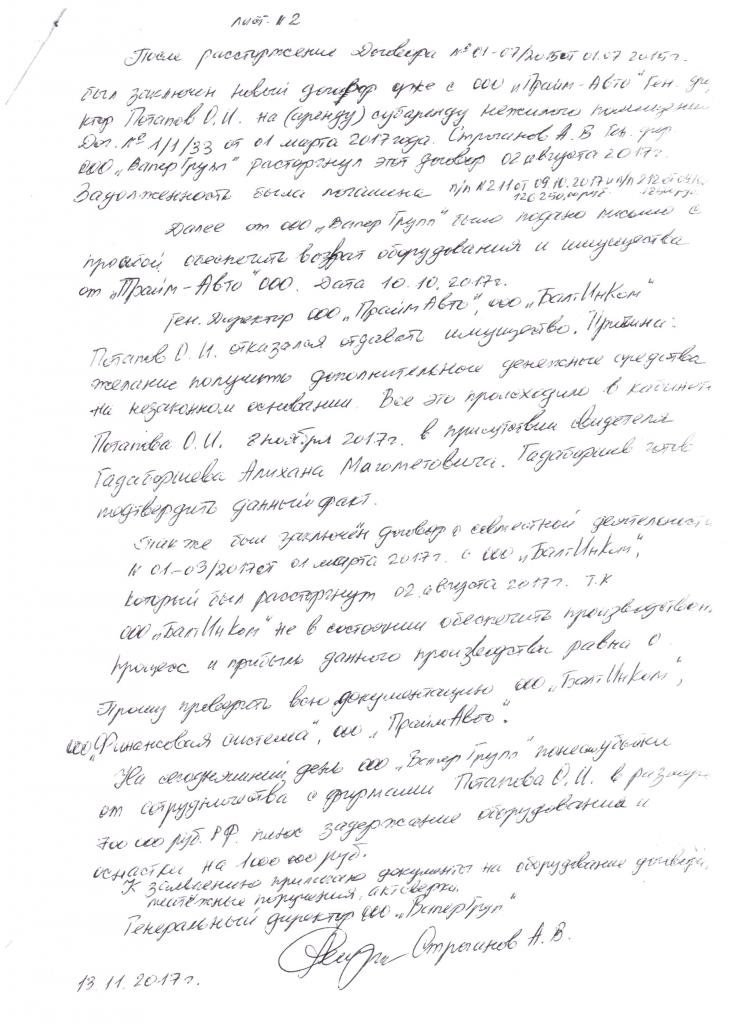 лист. №2
После расстаржение Договора №01-07/2015 от 01.07 2015г.
был заключен новый договор уже с ООО „Прайм-Авто" Ген. ди
ктор Потапов О.И. на (аренду) субаренду нежилого помещени
Дог. №1/1/33 от 01 марта 2017 года. Строганов А.В Ген. дир.
ООО „Вапер Групп" расторгнул этот договор 02 августа 2017г.
Задолженность была погашена п/п N211 от 09.10.2017 и п/п 212 от
126 250,00 руб.
Далее от ООО „Вапер Групп" было подано письмо с
просьбой обеспечить возврат оборудования и имущества
от „Прайм-Авто" ООО. Дата 10.10.2017г.
Ген. Директор ООО „Прайм Авто", ООО „БалтИнКом"
Потапов О.И. отказался отдавать имущество. Причина:
желание получить дополнительные денежные средства
на незаконном основании. Все это происходило в кабинете
Потапова О.И. 8 ноября 2017г. в присутствии свидетеля
Гадаборшева Алихана Магометовича. Гадаборшев готов
подтвердить данный факт.
Так же был заключён договор о совместной деятельности
N 01-03/2017 от 01 марта 2017г. с ООО „БалтИнКом",
который был расторгнут 02 августа 2017г. т.к
ООО „БалтИнКом" не в состоянии обеспечить производствен
процесс и прибыль данного производства равна 0.
Прошу проверать всю документацию ООО „БалтИнКом",
ООО „Финансовая система", ООО „Прайм Авто".
На сегодняшний день ООО „Вапер Групп" понес убытки
от сотрудничества с фирмами Потапова О.И. в размере
700 000 руб. РФ. плюс задержание оборудования и
оснастки на 1 000 000 руб.
К заявлению прилагаю документы на оборудование, договора,
платёжные поручения, акт сверки.
Генеральный директор ООО „Вапер Груп"
Строганов А.В.
13.11.2017г.